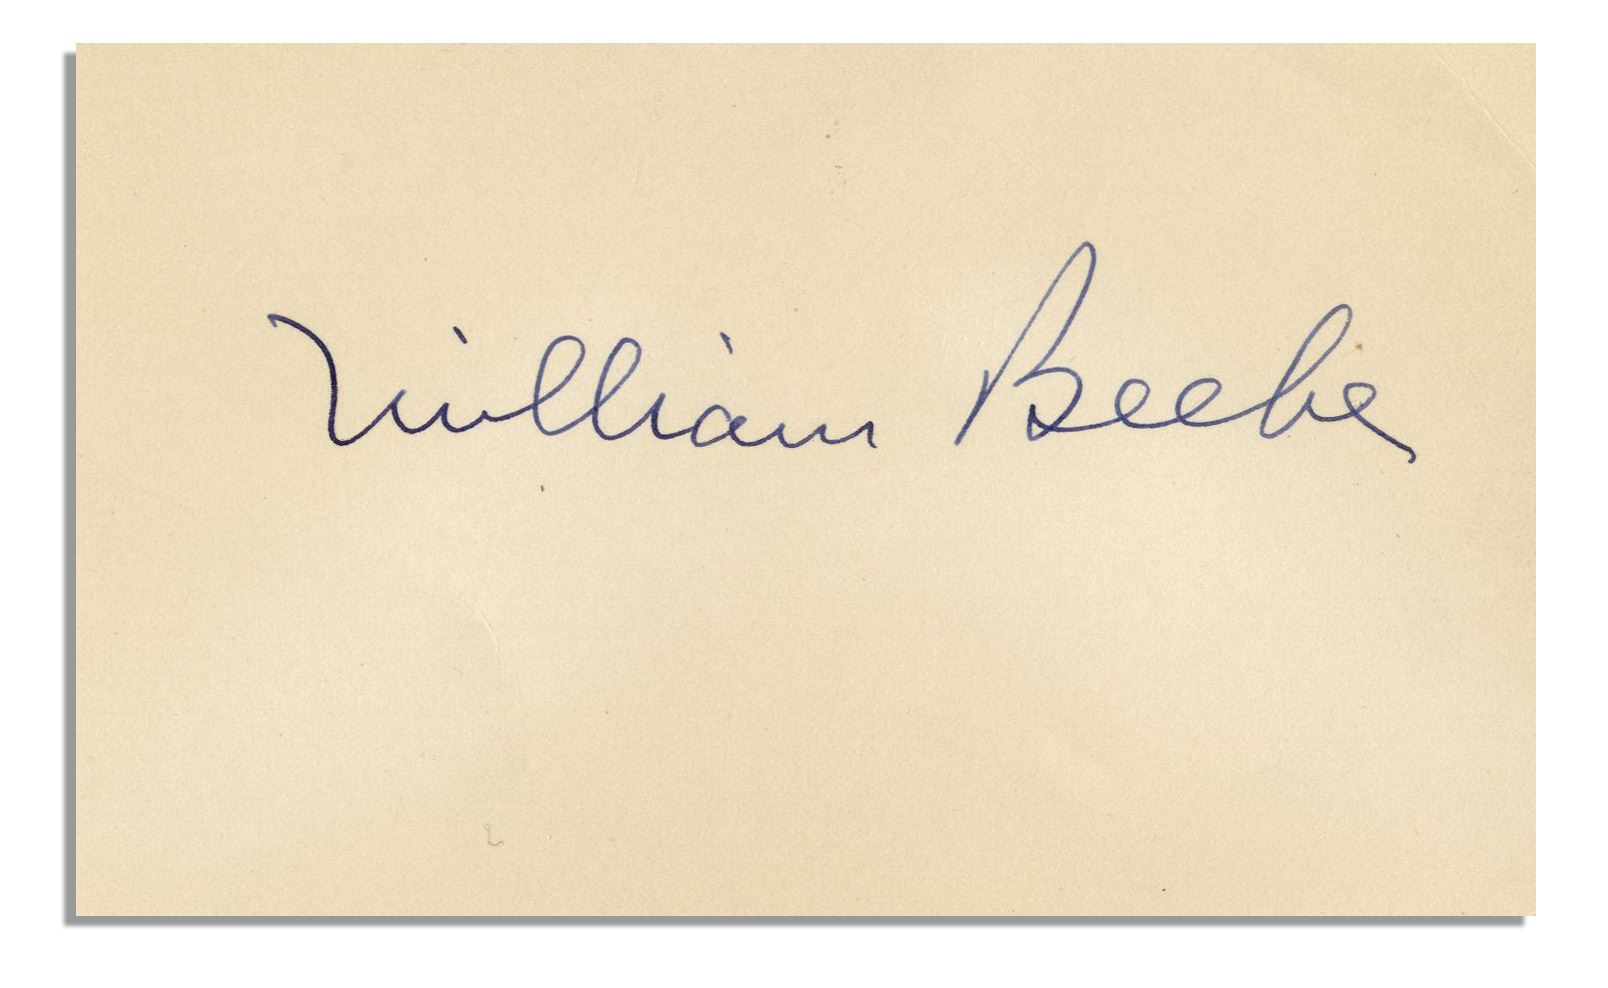 William Beebe